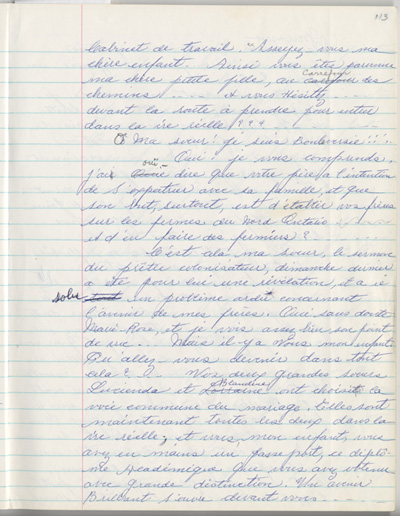 113
Cabinet de travail. "Asseyez-vous ma
chère enfant. Ainsi vous êtes parvenue
ma chère petite fille, au Carrefour des
chemins ---- et vous Hésitez
devant la route à prendre pour entrer
dans la vie réelle???
O Ma soeur! Je suis Bouleversée!!!
Oui! je vous comprends.
J'ai oui-dire que votre père a l'intention
de S'expatrier avec sa famille et que
son but, surtout, est d'établir vos frères
sur les fermes du Nord Ontario
et d'en faire des fermiers?
C'est cela, ma soeur, le sermon
du prêtre colonisateur, dimanche dernier
a été pour lui une révélation, et a
solu un problème ardu concernant
l'avenir de mes frères. Oui sans doute
Marie-Rose, et je vois assez bien son point
de vue... Mais il-y-a Vous mon enfant.
Qu'allez-vous devenir dans tout
cela?? Vos deux grandes soeurs
Lucienda et Blandine ont choisit la
voie commune du mariage. Elles sont
maintenant toutes les deux dans la
vie réelle; et vous, mon enfant, vous
avez en mains un passe port, ce diplô-
me Académique que vous avez obtenu
avec grande distinction. Un avenir
Brillant s'ouvre devant vous----